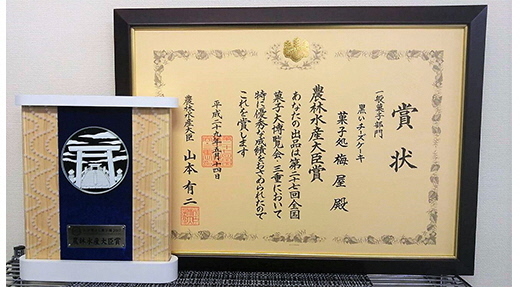 賞状
一般菓子部門
黒いチーズケーキ
菓子処 梅屋 殿
農林水産大臣賞
あなたの出品は第二十七回全国
菓子大博覧会・三重において
特に優秀な成績をおさめられたので
これを賞します
平成二十九年五月十四日
農林水産大臣 山本有二
農林水産大臣賞